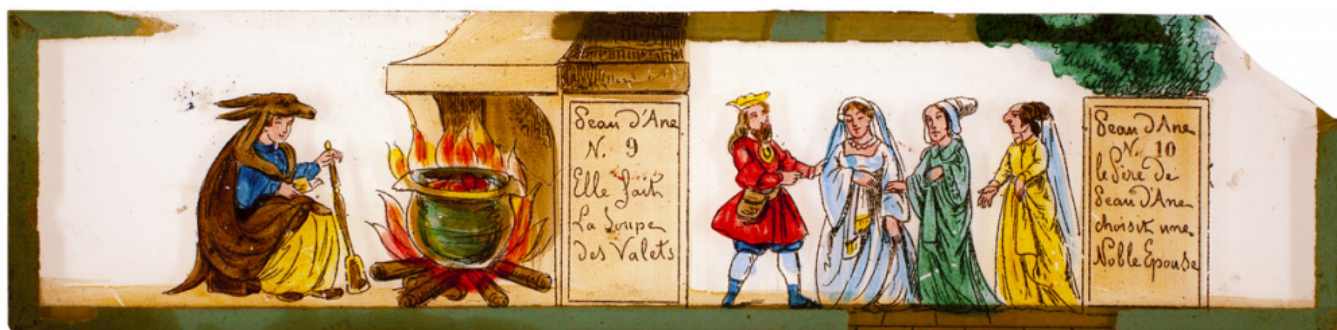 Peau d'Ane
N. 9
Elle fait
La Soupe
des Valets
Peau d'Ane
N. 10
le Père de
Peau d'Ane
choisit une
Noble Epouse